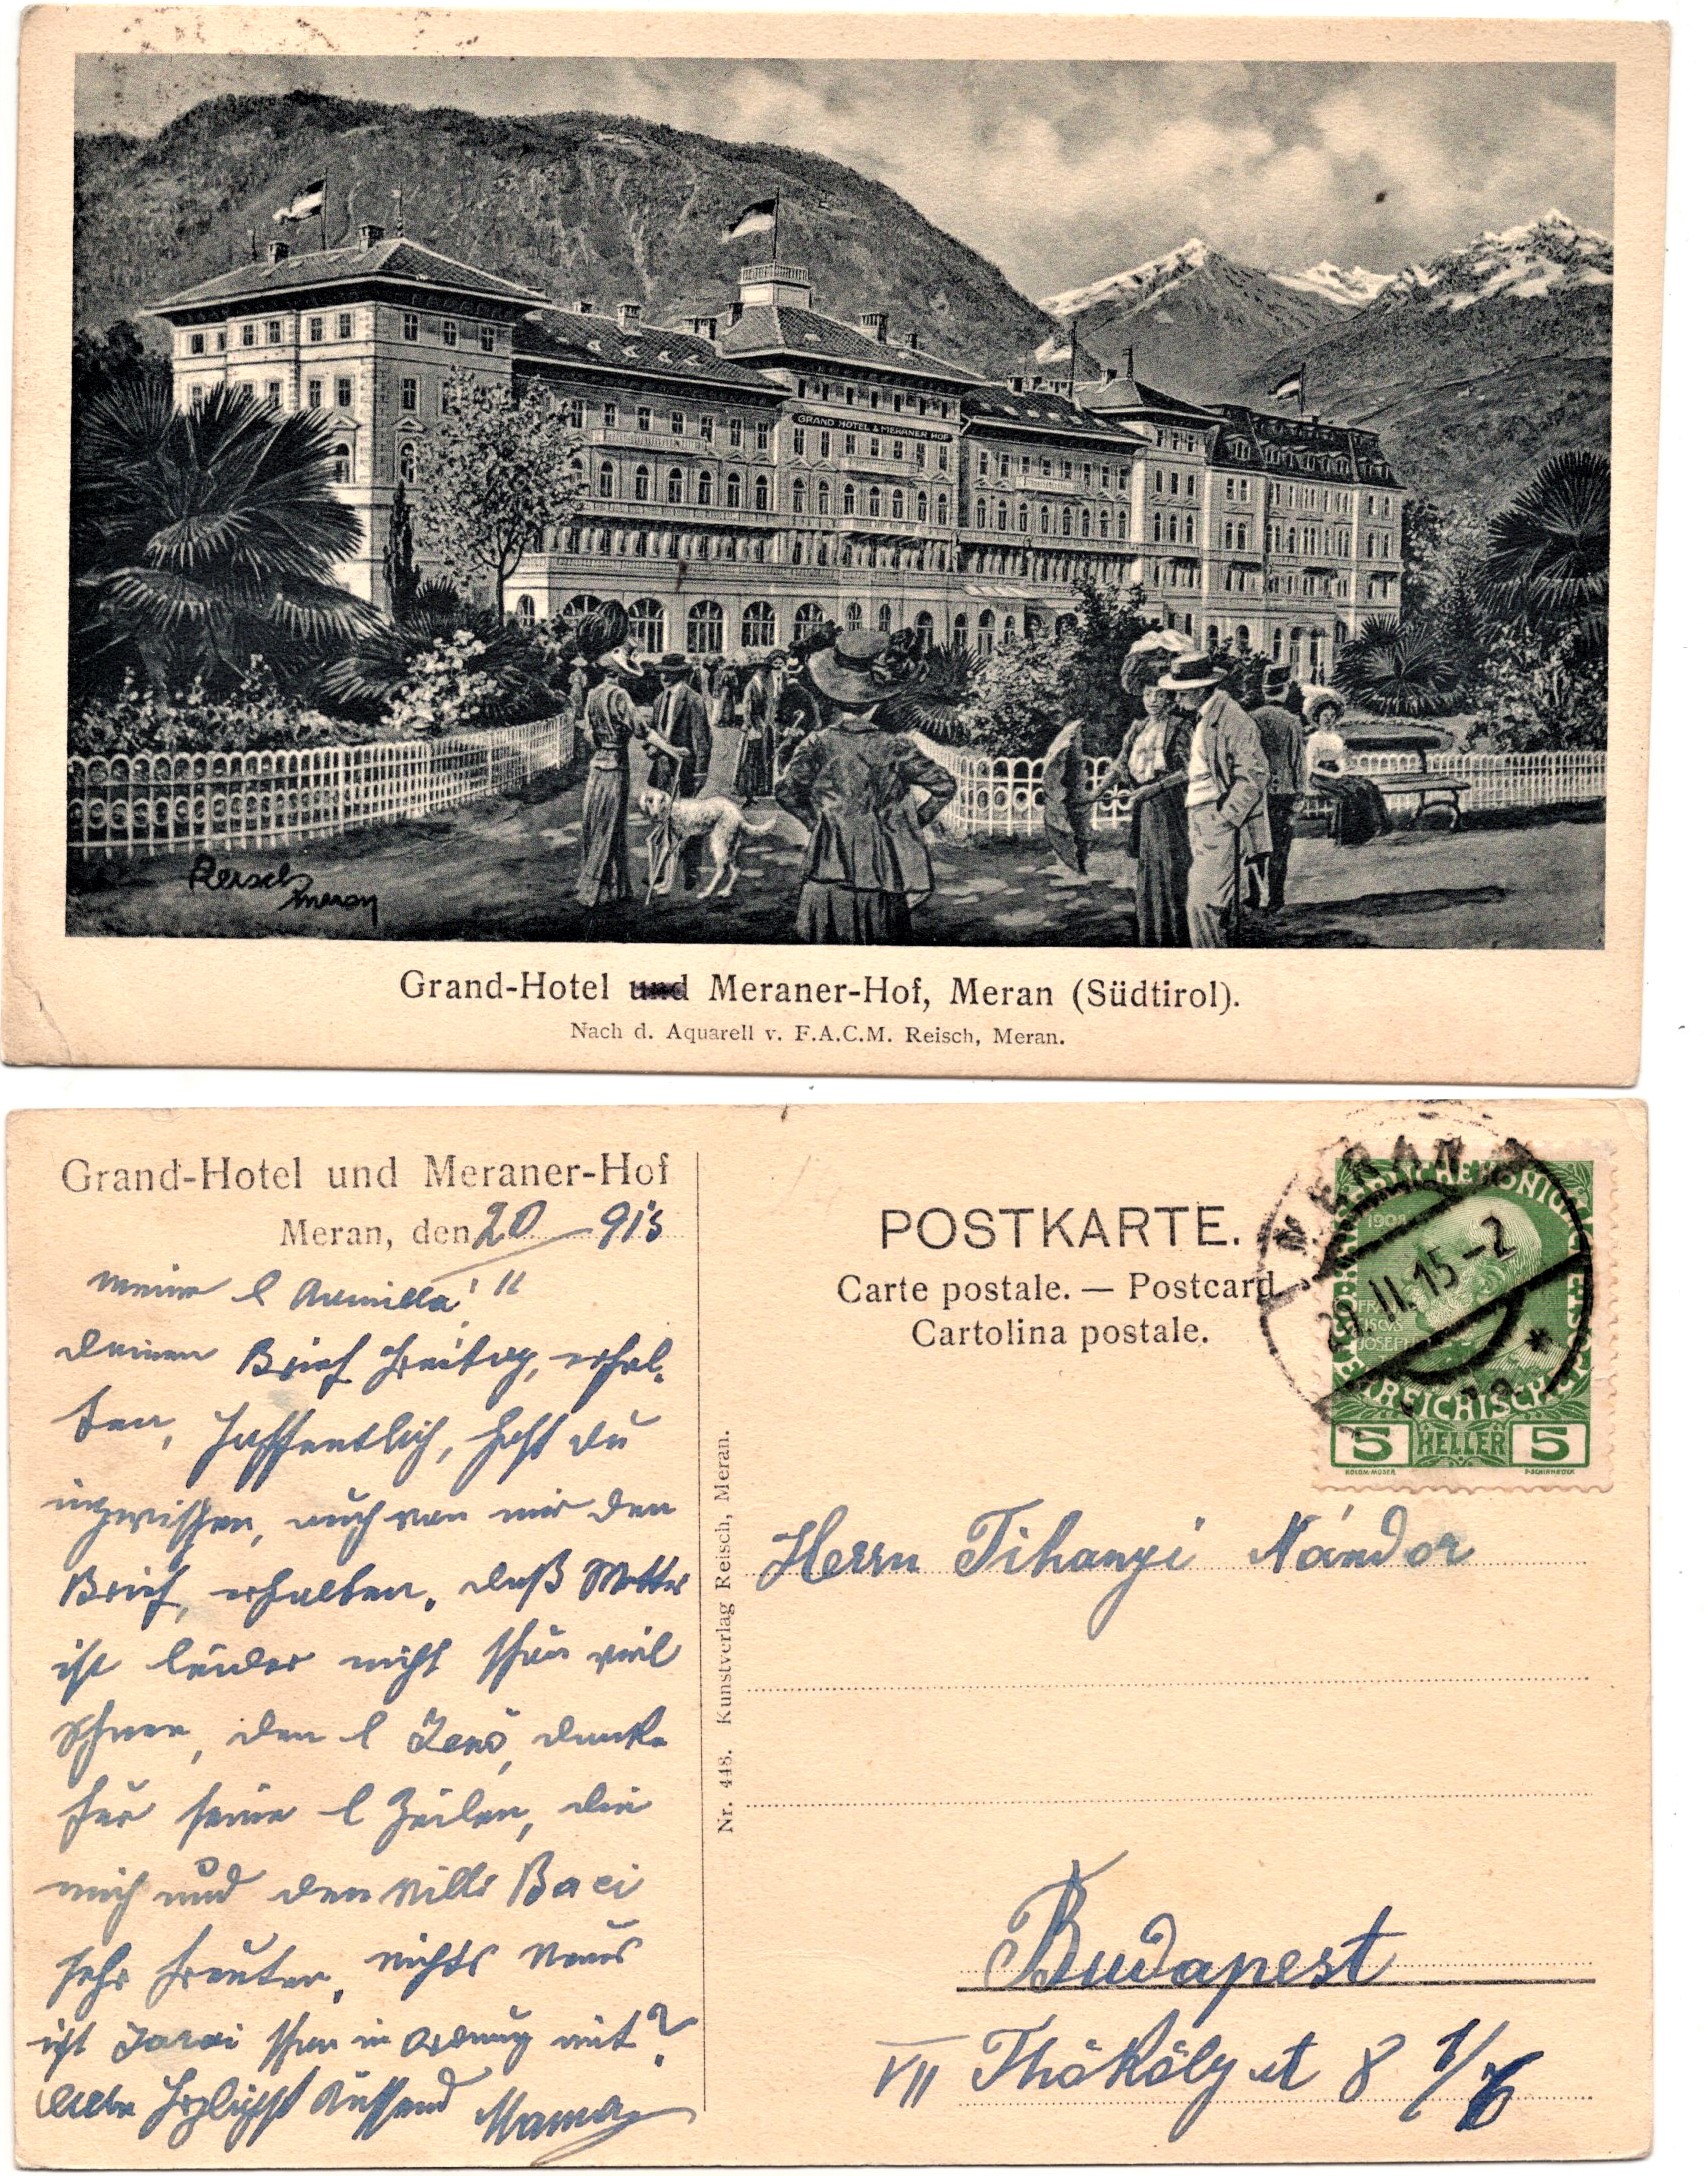 GRAND HOTEL & MERANER HOF
Reisch
Meran
Grand-Hotel und Meraner-Hof, Meran (Südtirol).
Nach d. Aquarell v. F.A.C.M. Reisch, Meran.
Grand-Hotel und Meraner-Hof
Meran, den 20 915
meine l Armilla!!
deinen Brief Freitag, erhal-
ten, hoffentlich, hast du
inzwischen, auch von mir den
Brief, erhalten, daß Wetter
ist leider nicht schön viel
Schnee, den l Jenö, danke
für seine l Zeilen, die
mich und den Villi Baci
sehr freuten, nichts neues
ist schon in Ordnung mit?
Alle herzlichst Küssend Mama
Nr. 448. Kunstverlag Reisch, Meran.
POSTKARTE.
Carte postale. — Postcard
Cartolina postale.
MERAN
20. II. 15 - 2
1908
FRANCISCUS JOSEPH
5 HELLER 5
KOLOM·MOSER
F·SCHIRNBÖCK
Herrn Tihanyi Nándor
Budapest
VII Thököly ut 8 1/6